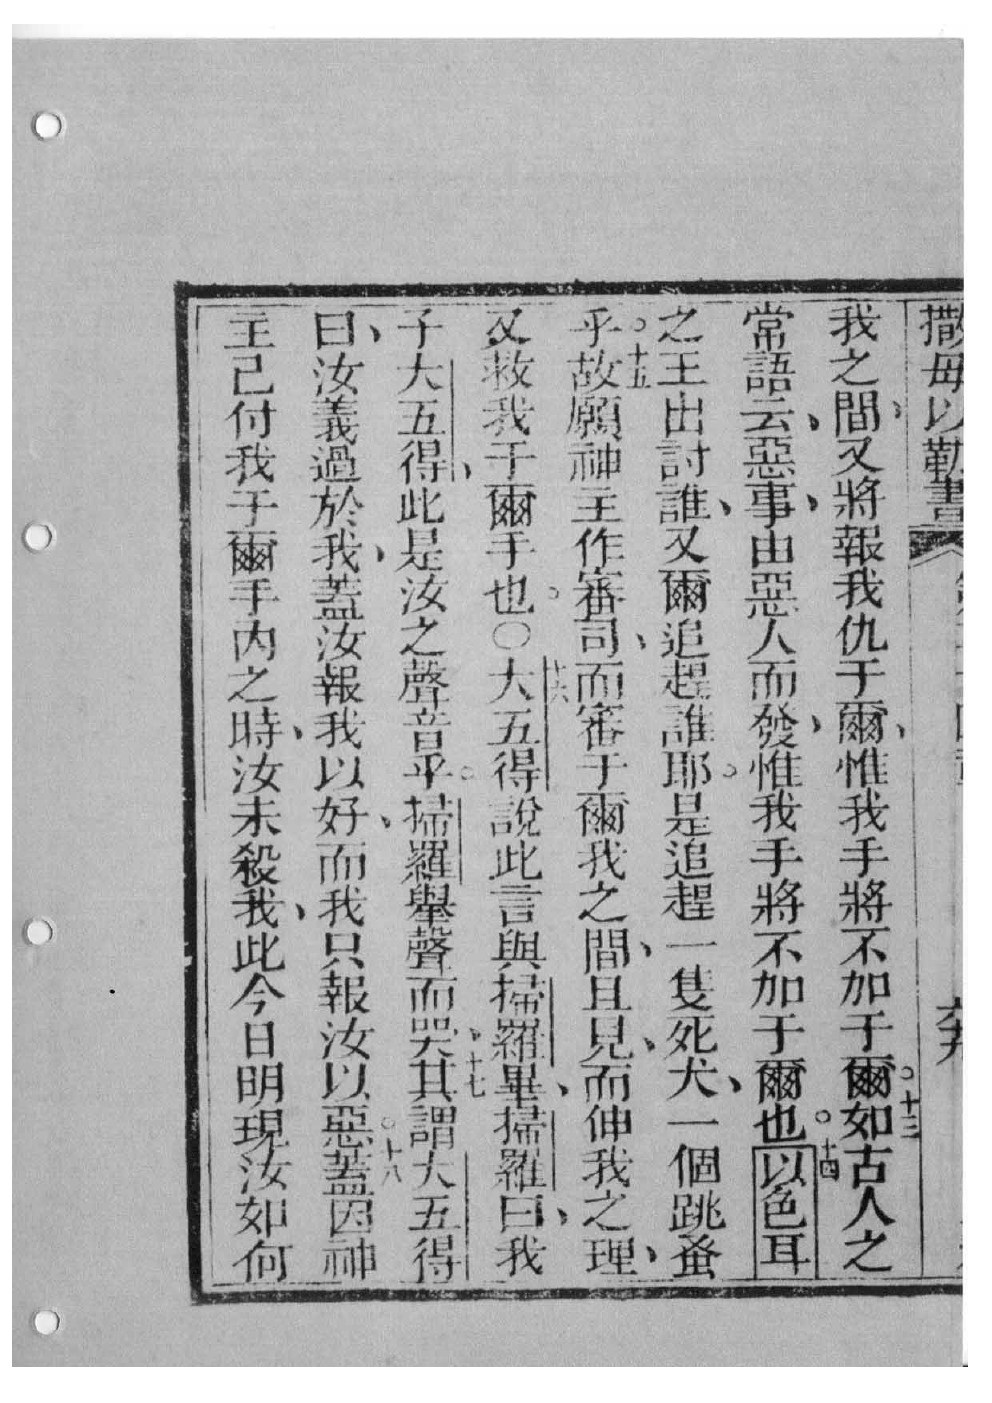 撒母以勒書
我之間、又將報我仇于爾、惟我手將不加于爾。十三如古人之
常語云、惡事、由惡人而發、惟我手將不加于爾也。十四以色耳
之王出討誰、又爾追趕誰耶。是追趕一隻死犬、一個跳蚤
乎。十五故願神主作審司、而審于爾我之間、且見、而伸我之理、
又救我于爾手也。〇十六大五得說此言與掃羅畢、掃羅曰、我
子大五得、此是汝之聲音乎。掃羅舉聲而哭、十七其謂大五得
曰、汝義過於我、蓋汝報我以好、而我只報汝以惡。十八蓋因神
主已付我于爾手內之時、汝未殺我、此今日明現汝如何